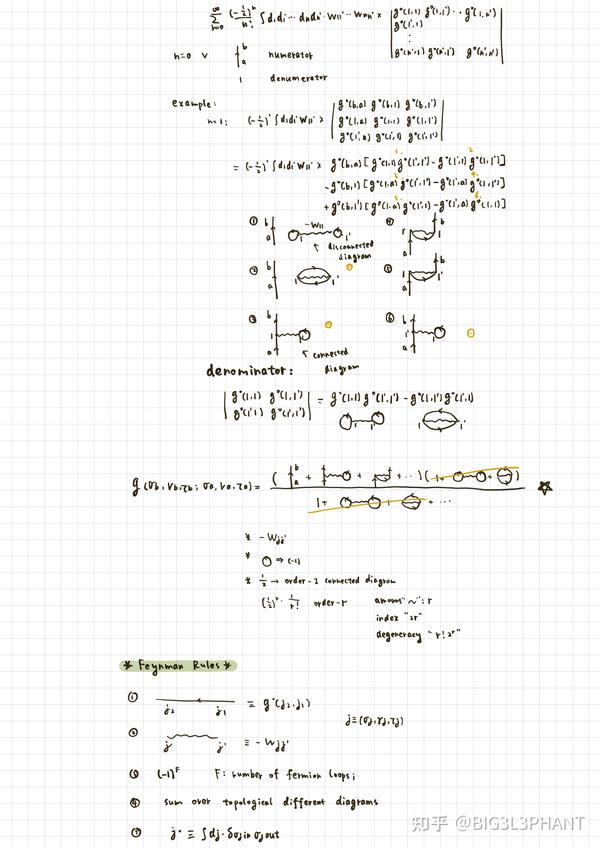 ∞ Σ n=0 (-½)ⁿ/n! ∫ d1d1' ··· dndn' · W11' ·· Wnn' × | g°(1,1) g°(1,1') ·· g°(1,n')
g°(1',1)
⋮
g°(n',1) g°(n',1') g°(n',n') |
n=0 ∨ b a numerator
1 denumerator
example:
n=1: (-½)' ∫ d1d1' W11' × | g°(b,a) g°(b,1) g°(b,1')
g°(1,a) g°(1,1) g°(1,1')
g°(1',a) g°(1',1) g°(1',1') |
= (-½)' ∫ d1d1' W11' × g°(b,a) [ g°(1,1) g°(1',1') - g°(1',1) g°(1,1') ]
- g°(b,1) [ g°(1,a) g°(1',1') - g°(1',a) g°(1,1') ]
+ g°(b,1') [ g°(1,a) g°(1',1) - g°(1',a) g°(1,1) ]
① b a -W11' 1 1' ④ b a
↑ disconnected diagram
② b a 1 1' ⑤ b a 1
③ b 1 a 1' ⑥ b 1' a 1
↖ connected diagram
denominator:
| g°(1,1) g°(1,1')
g°(1',1) g°(1',1') | = g°(1,1) g°(1',1') - g°(1,1') g°(1',1)
1 1' 1 1'
g(σb, νb, τb; σa, νa, τa) = ( b a + + + ··· ) ( 1+ + ) ☆
1+ + + ···
* -Wjj'
* ⇒ (-1)
* ½ → order-1 connected diagram
(½)ʳ · 1/r! order-r amount "~": r
index "2r"
degeneracy "r! 2ʳ"
* Feynman Rules *
① j2 j1 ≡ g°(j2, j1)
j≡(σj, rj, τj)
② j j' ≡ -Wjj'
③ (-1)ᶠ F: number of fermion loops;
④ sum over topological different diagrams
⑤ j· ≡ ∫ dj · δσjin σjout
知乎 @BIG3L3PHANT